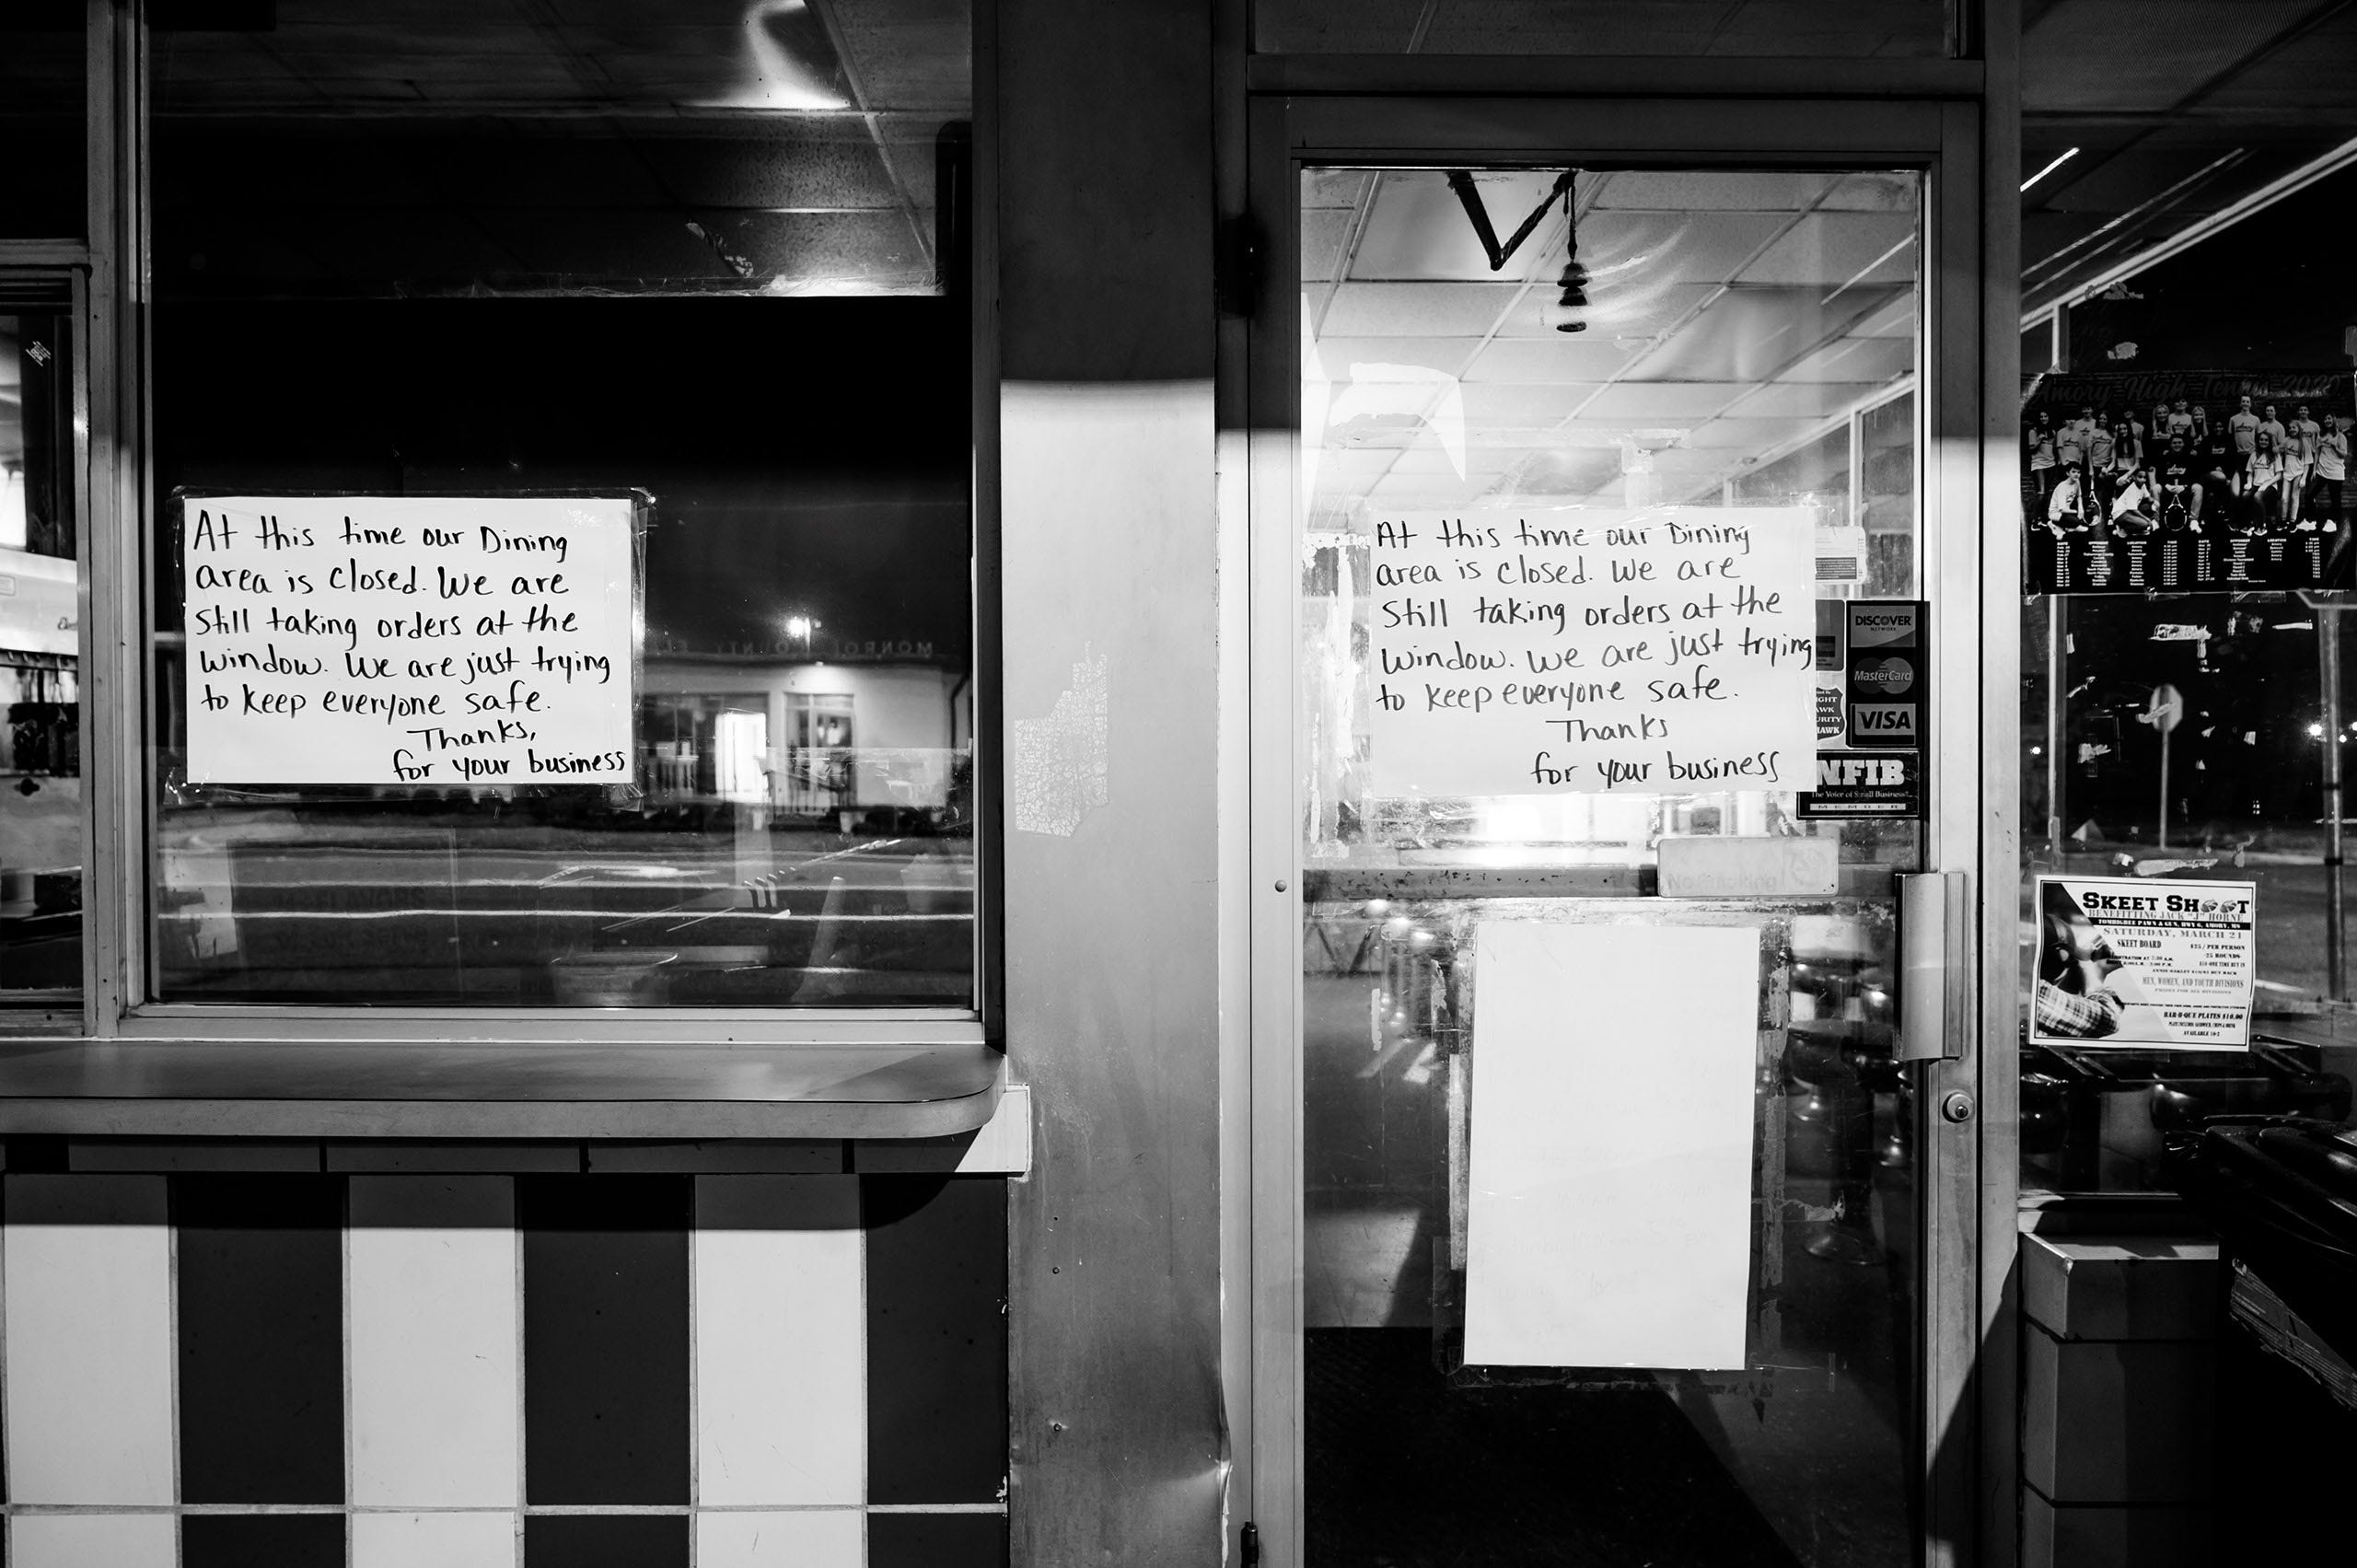 At this time our Dining
area is closed. We are
Still taking orders at the
window. We are just trying
to keep everyone safe.
Thanks,
for your business
At this time our Dining
area is closed. We are
Still taking orders at the
window. We are just trying
to keep everyone safe.
Thanks
for your business
DISCOVER
NETWORK
MasterCard
VISA
NFIB
The Voice of Small Business
MEMBER
MONROE COUNTY
Amory High Tennis 2020
SKEET SHOOT
BENEFITTING JACK "J" HORNE
TOMBIGBEE PAWN & GUN, HWY 6, AMORY, MS
SATURDAY, MARCH 21
SKEET BOARD
$25 / PER PERSON
25 ROUNDS
MEN, WOMEN, AND YOUTH DIVISIONS
PRIZES FOR ALL DIVISIONS
BAR-B-QUE PLATES $10.00
AVAILABLE 10-2